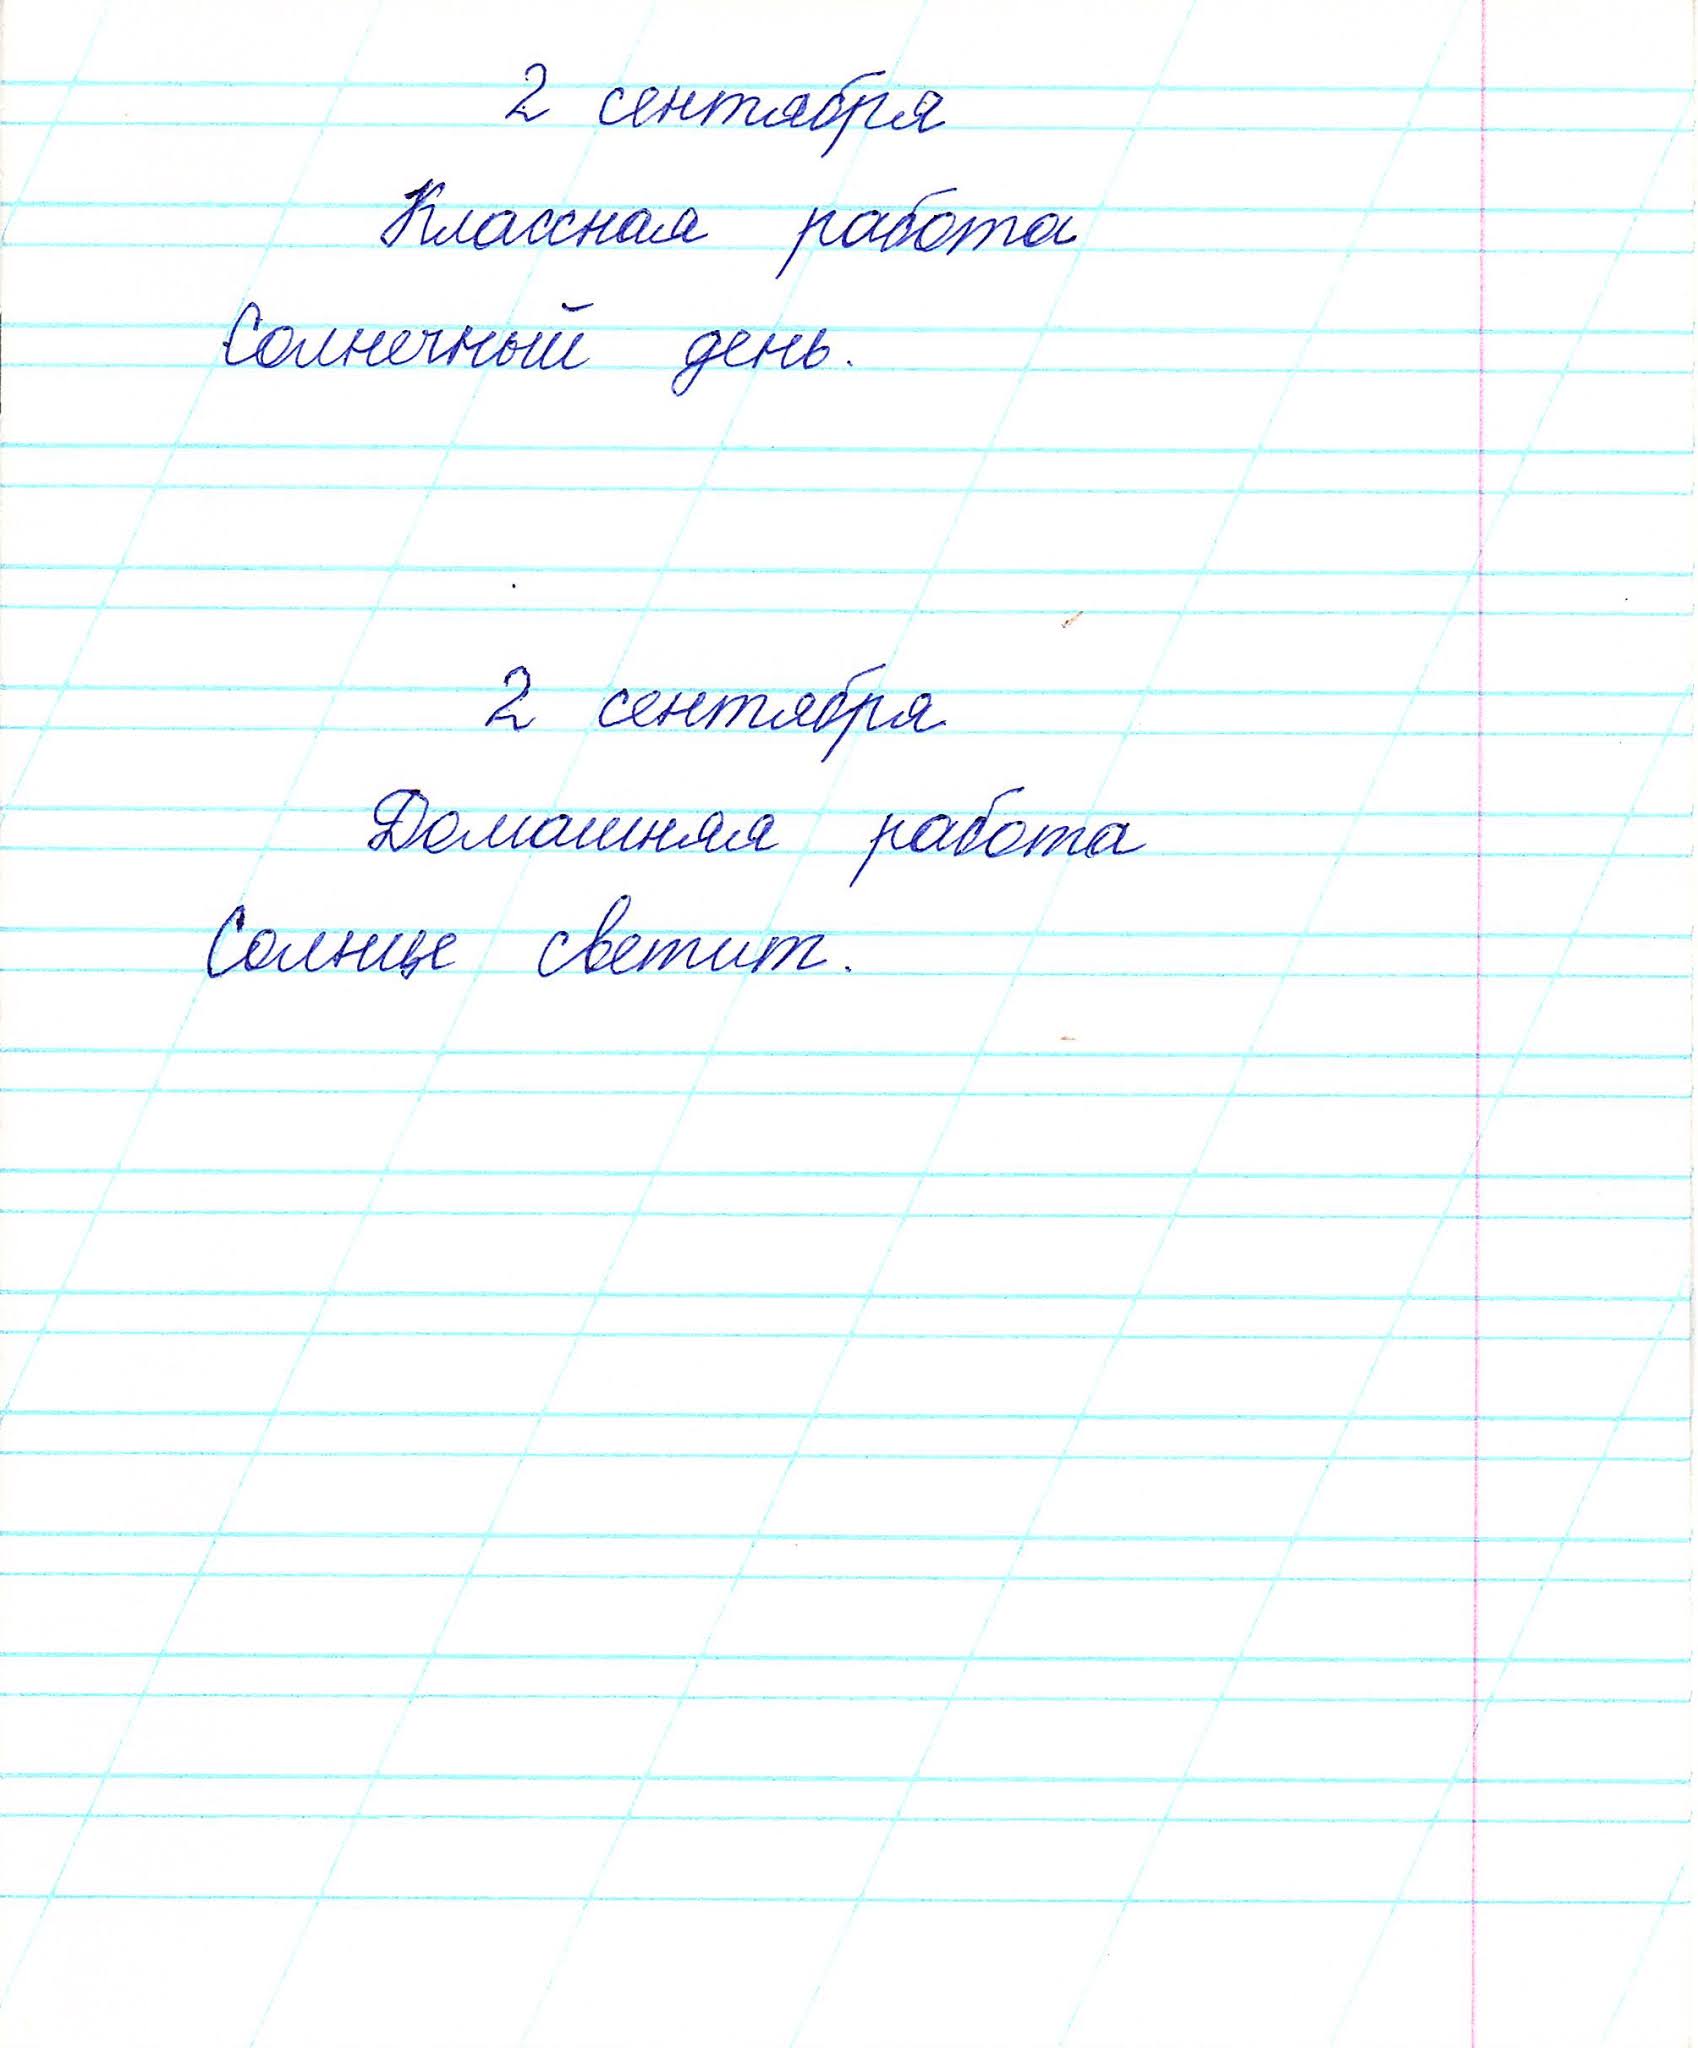 2 сентября
Классная работа
Солнечный день.
2 сентября
Домашняя работа
Солнце светит.